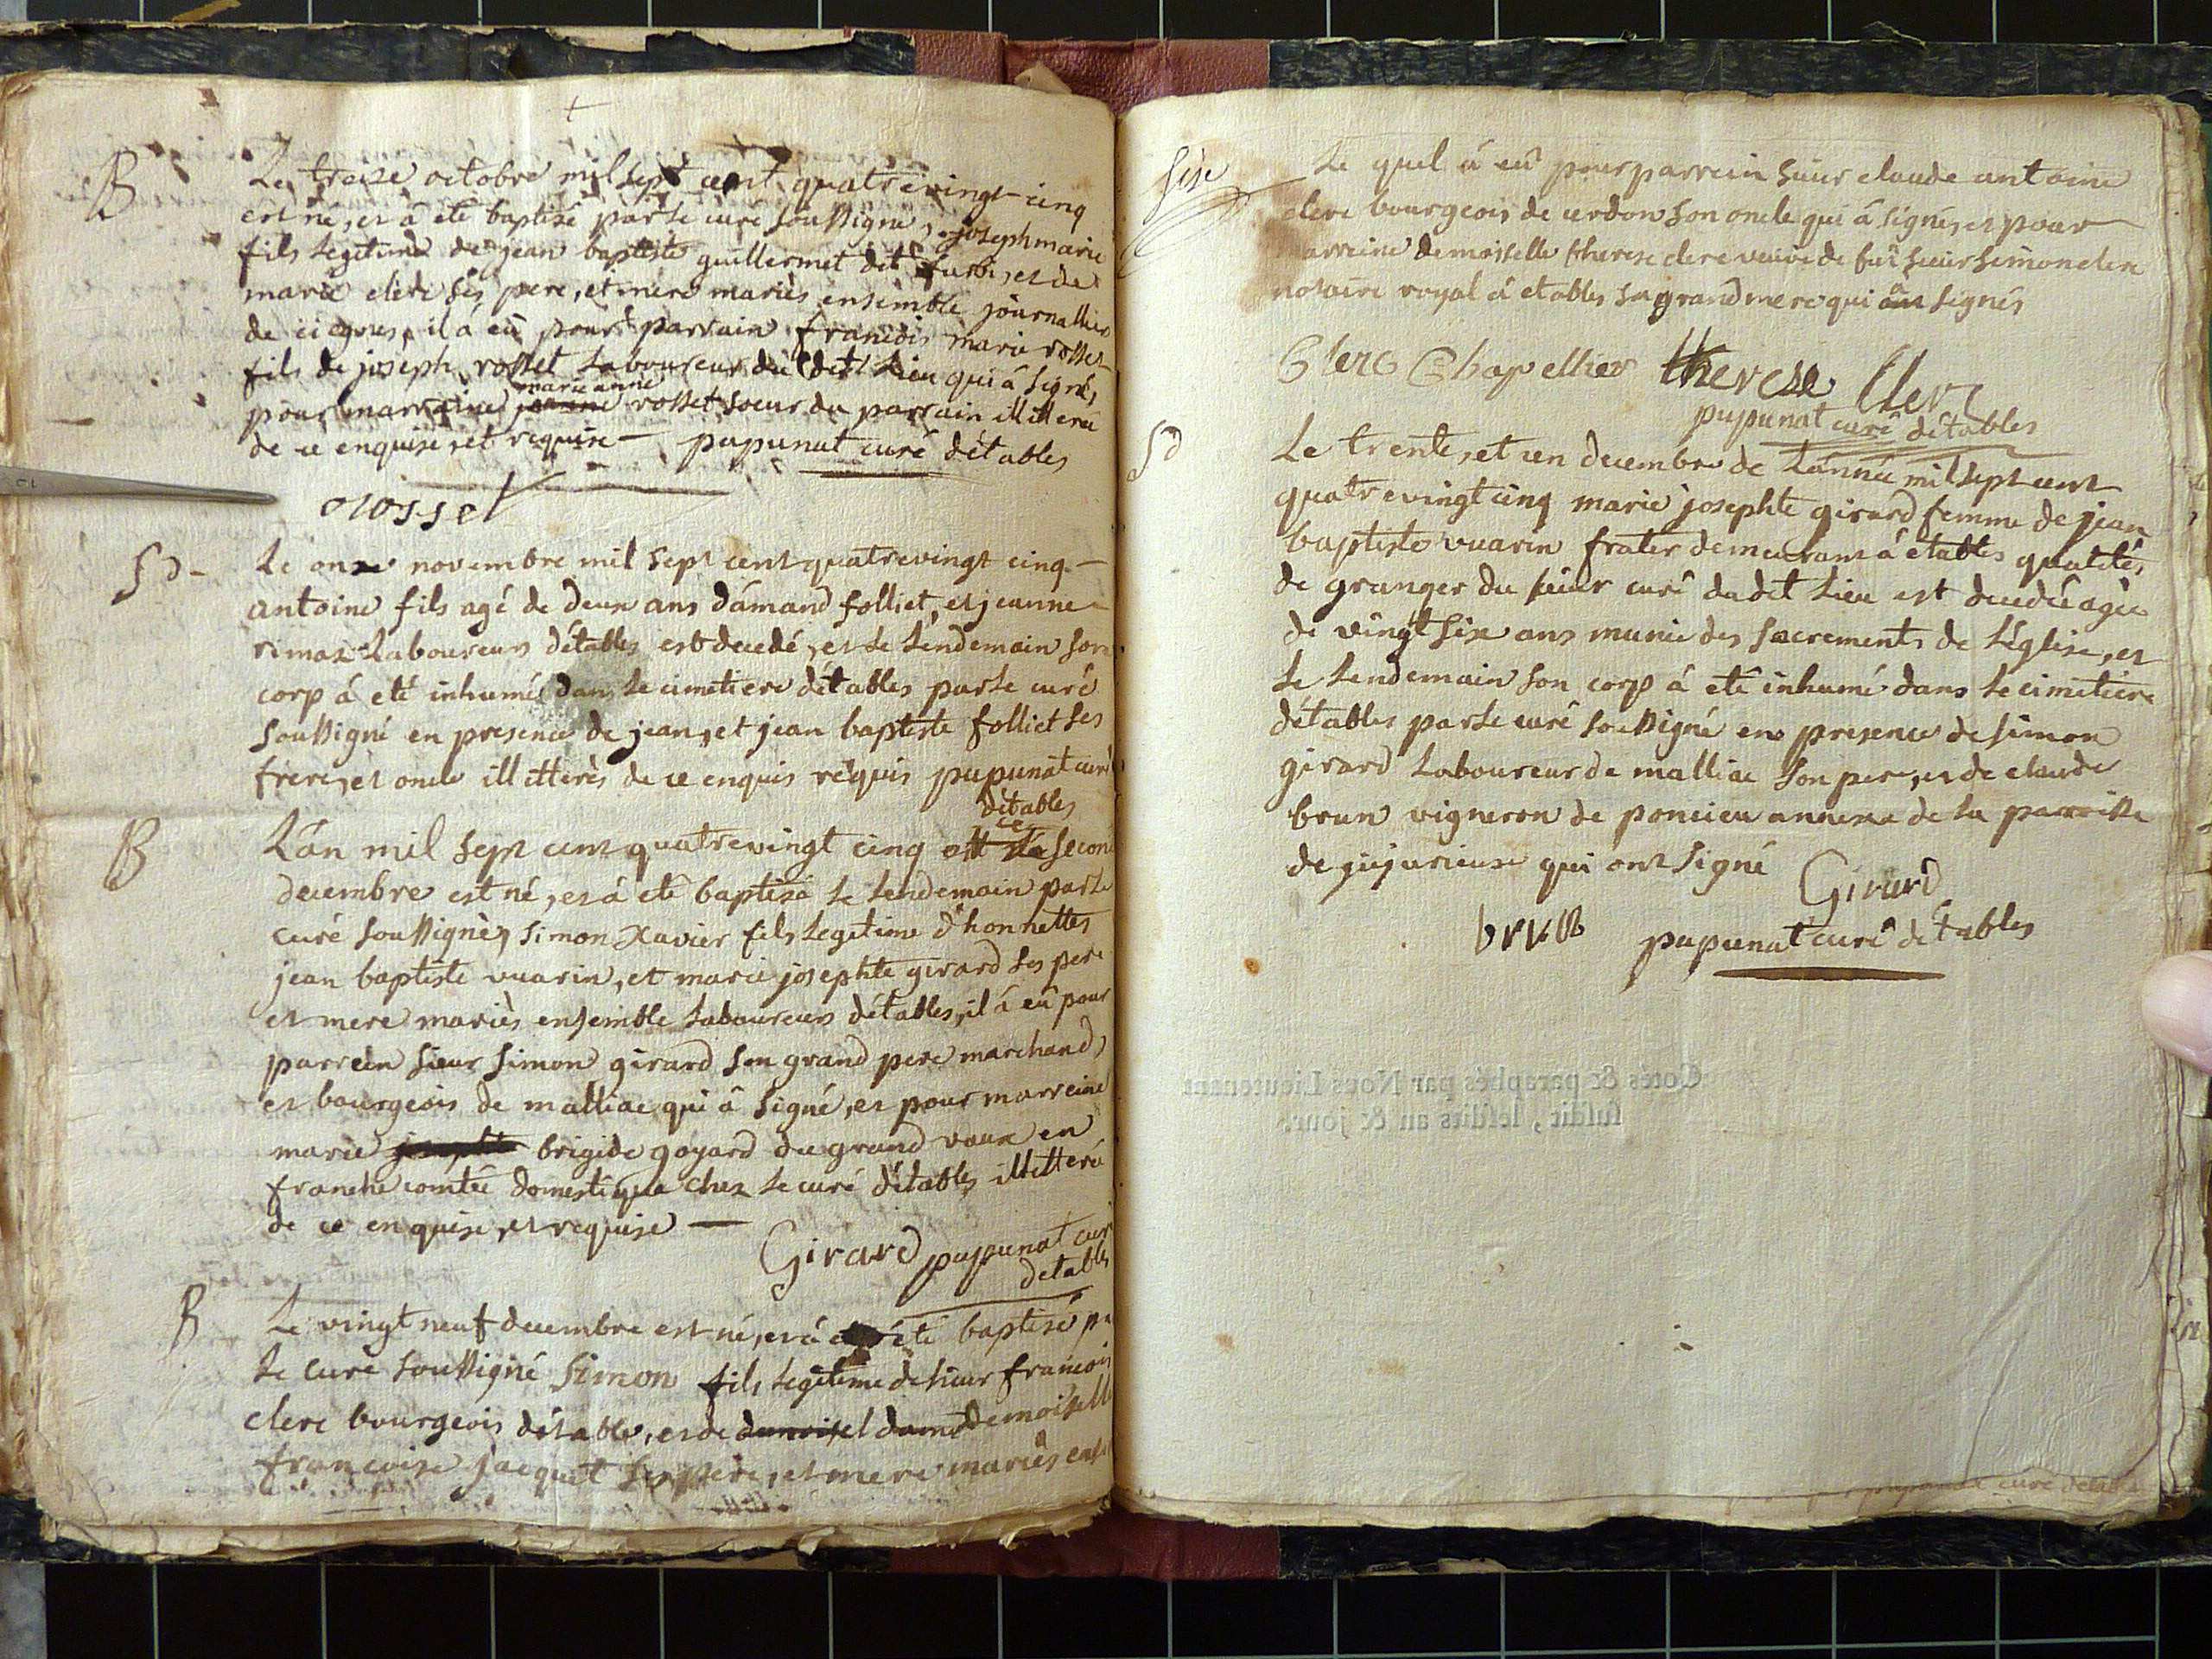 B
Le treize octobre mil sept cent quatrevingt cinq
est né, et á eté baptisé par le curé soussigné, joseph marie
fils legitime de jean baptiste guillermet dit et de
marie clerc ses pere, et mere mariés ensemble journalliers
de ciegnes, il á eû pour parrain francois marie rosset
fils de joseph rosset laboureur du dit lieu qui á signé,
marie anne
pour marraine jeanne rosset soeur du parrain illitteré
de ce enquise, et requise — pupunat curé détables
rosset
Sd -
Le onze novembre mil sept cent quatrevingt cinq —
antoine fils agé de deux ans dámand folliet, et jeanne
rimax laboureurs détables est decedé, et le lendemain son
corp á eté inhumé dans le cimetiere détables par le curé
soussigné en presence de jean, et jean baptiste folliet ses
frere, et oncle illitterés de ce enquis requis pupunat curé
détables
B
Lán mil sept cent quatrevingt cinq et ce second
decembre est né, et á eté baptisé le lendemain par le
curé soussigné, simon xavier fils legitime d'honnettes
jean baptiste vuarin, et marie josephte girard ses pere
et mere mariés ensemble laboureurs détables, il á eû pour
parrein sieur simon girard son grand pere marchand,
et bourgeois de malliac qui á signé, et pour marreine
marie josephte brigide goyard du grand vaux en
franche comtée domestique chez le curé détables illitteré
de ce enquise, et requise —
Girard pupunat curé
détables
B
Le vingt neuf decembre est né, et á eté baptisé pa
le curé soussigné Simon fils legitime de sieur francois
clerc bourgeois détables, et de demoiselle
francoise jacquet ses pere, et mere mariés ens
sixe
Le quel á eû pour parrein sieur claude antoine
clerc bourgeois de cerdon son oncle qui á signé, et pour
marreine demoiselle therese clerc veuve de feu sieur simon clerc
notaire royal á etables sa grand mere qui á signés
Clerc Chapellier therese Clerc
pupunat curé détables
Sd
Le trente, et un decembre de Lánnée mil sept cent
quatrevingt cinq marie josephte girard femme de jean
baptiste vuarin frater demeurant á etables qualités
de granger du sieur curé du dit lieu est decedée agée
de vingt six ans munie des sacrements de Léglise, et
le lendemain son corp á eté inhumé dans le cimetiere
détables par le curé soussigné en presence de simon
girard laboureur de malliac son pere, et de claude
brun vigneron de poncieu annexe de la parroisse
de jujurieux qui ont signé
Girard
brun pupunat curé détables
Cotés & paraphés par Nous Lieutenant
susdit, lesdits an & jour.
pupunat curé détables